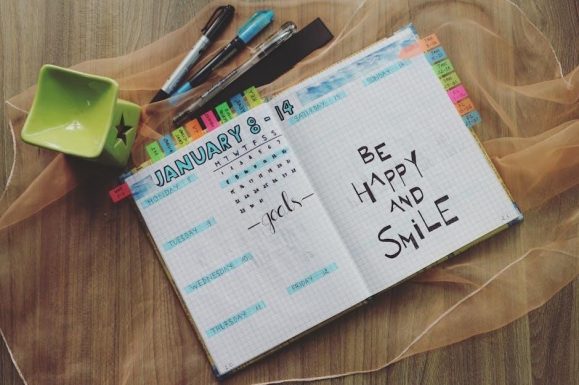 JANUARY 8 - 14
MTWTFSS
MONDAY 8
TUESDAY 9
WEDNESDAY 10
THURSDAY 11
-goals-
FRIDAY 12
SATURDAY 13
SUNDAY 14
BE
HAPPY
AND
SMiLE